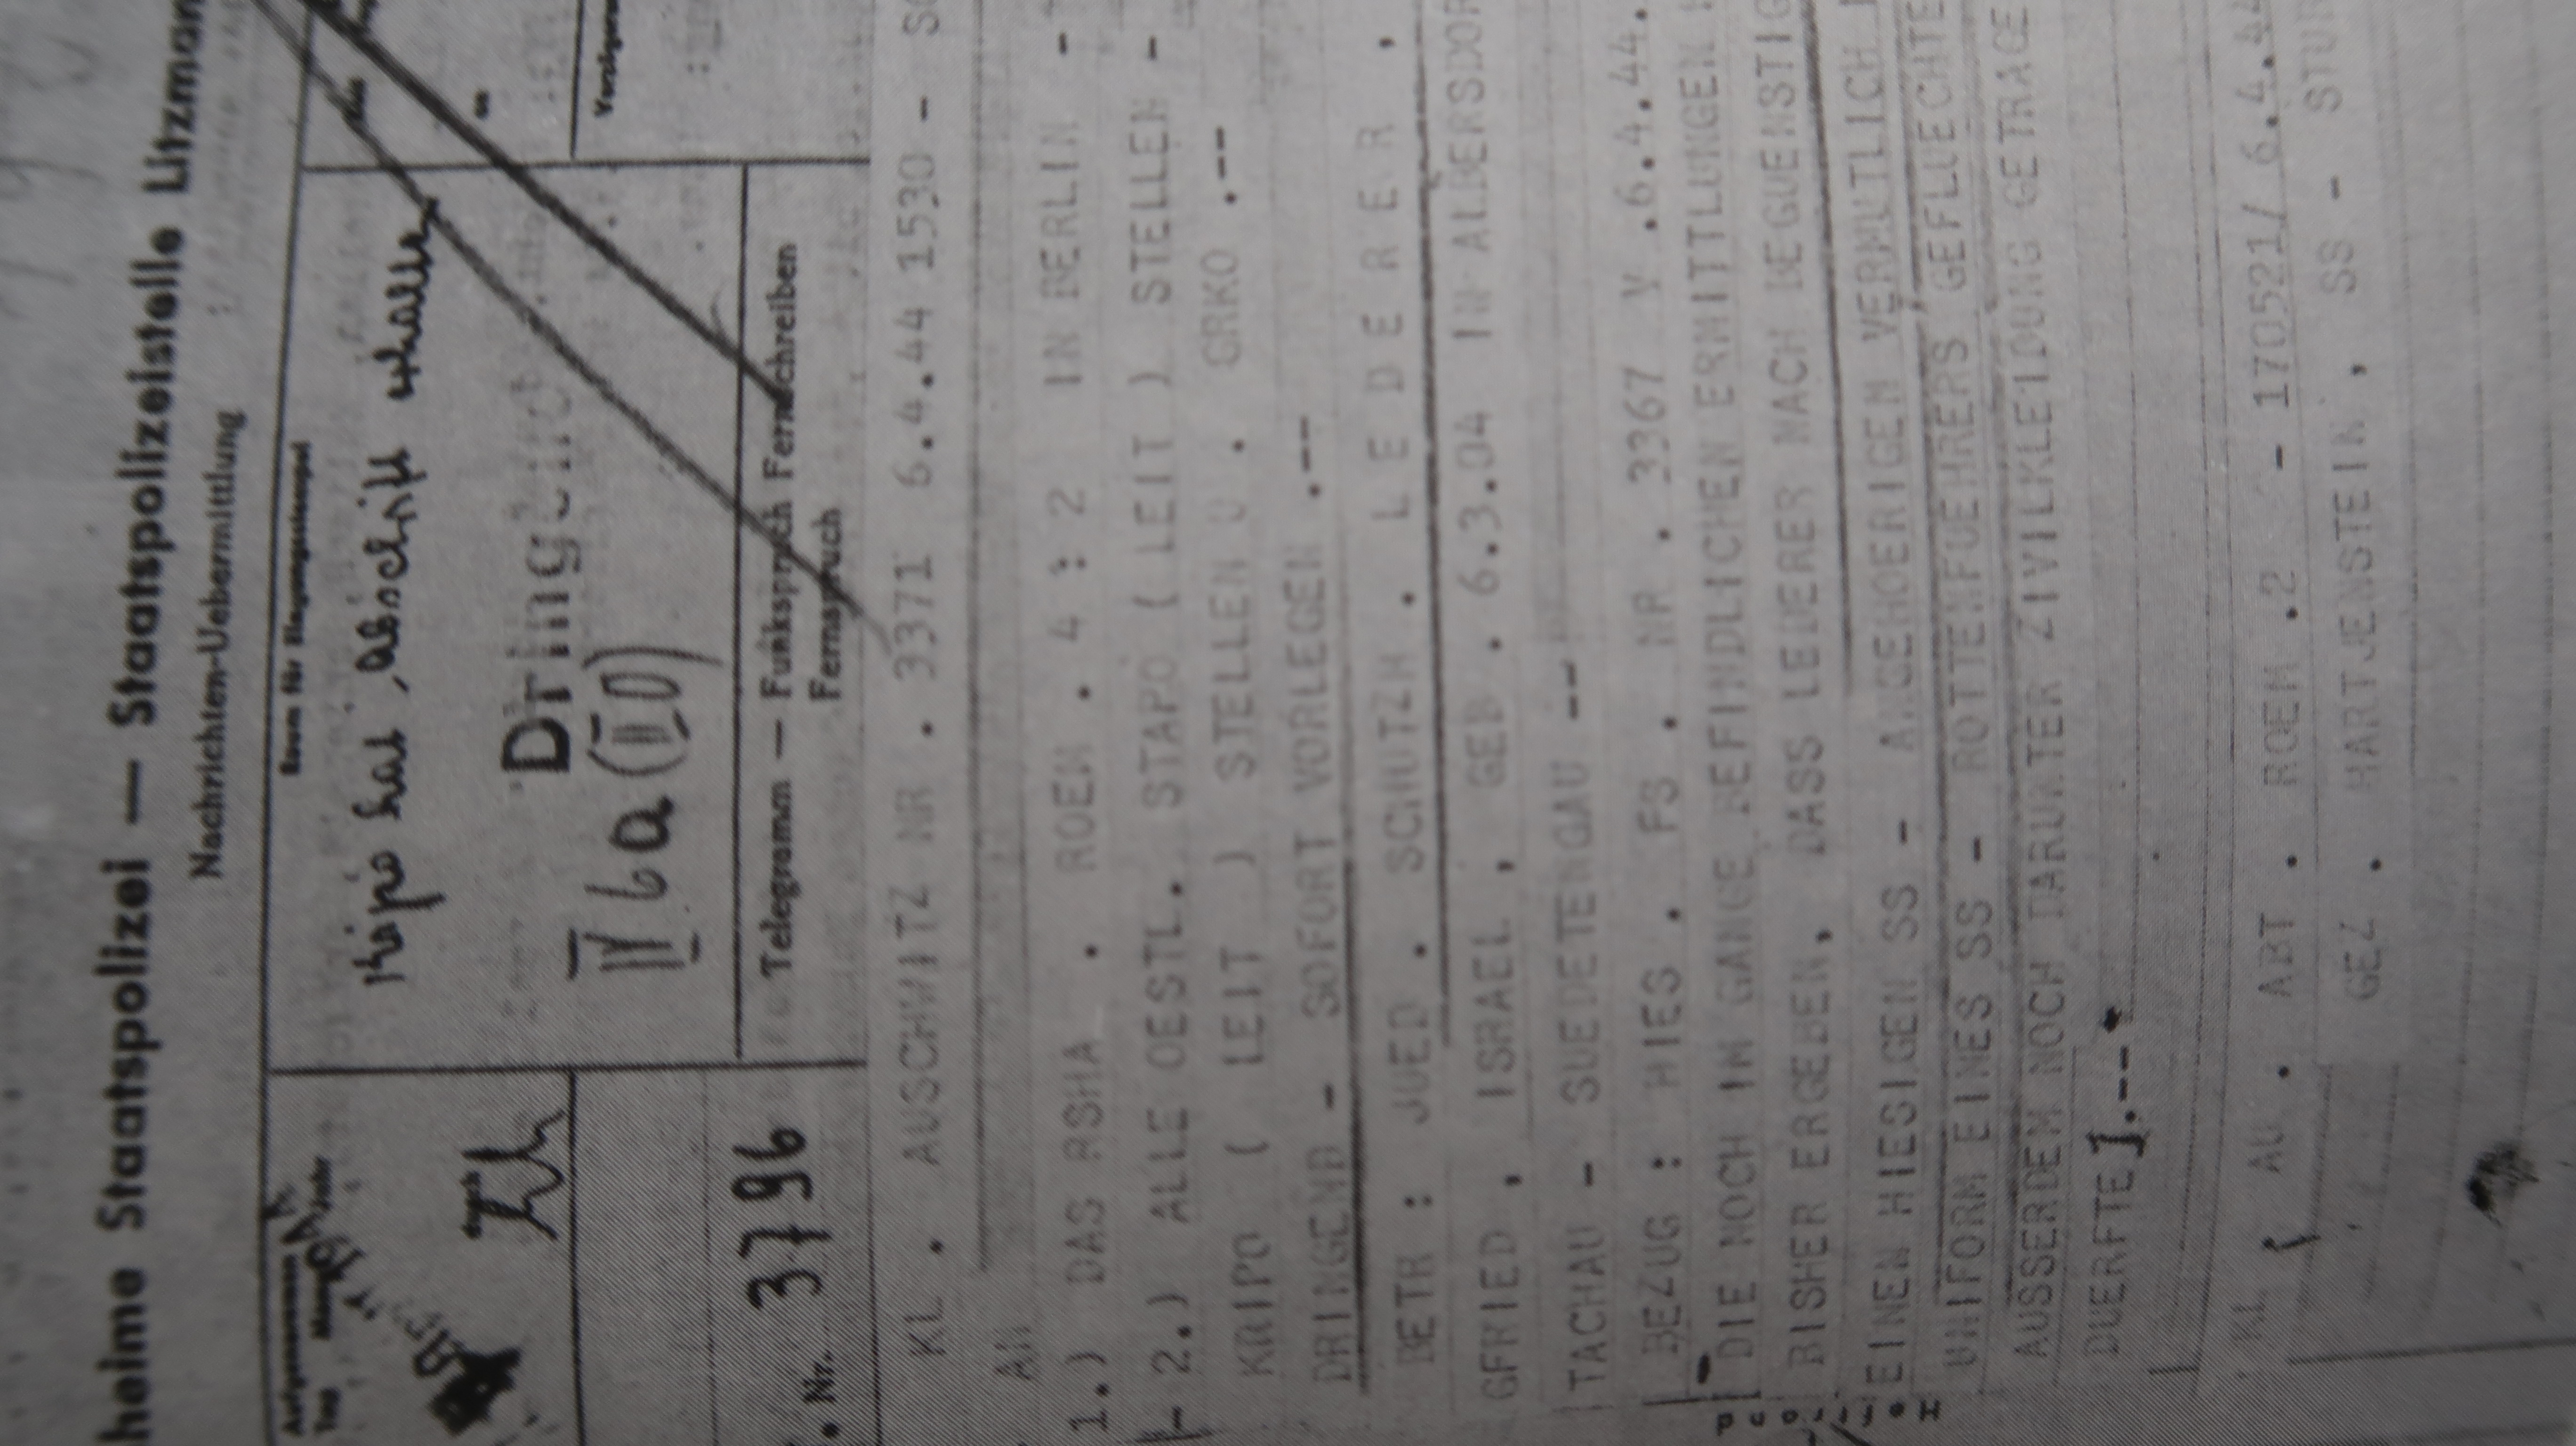 heime Staatspolizei — Staatspolizeistelle Litzman
Nachrichten-Uebermittlung
Aufgenommen
Tag Monat Jahr
durch
Raum für Eingangsstempel
Kripo hat Abschrift erhalten
Dringend
IV 6a (IID)
. Nr. 3796
Telegramm — Funkspruch Fernschreiben
Fernspruch
KL . AUSCHWITZ NR . 3371 6.4.44 1530 -
AN
1.) DAS RSHA . ROEM . 4 : 2 IN BERLIN -
- 2.) ALLE OESTL. STAPO ( LEIT ) STELLEN -
KRIPO ( LEIT ) STELLEN U . GRKO .--
DRINGEND - SOFORT VORLEGEN .--
BETR : JUED . SCHUTZH . L E D E R E R ,
GFRIED , ISRAEL , GEB . 6.3.04 IN ALBERSDOR
TACHAU - SUEDETENGAU --
BEZUG : HIES . FS . NR . 3367 V .6.4.44.
DIE NOCH IM GANGE BEFINDLICHEN ERMITTLUNGEN
BISHER ERGEBEN, DASS LEDERER NACH BEGUENSTIG
EINEN HIESIGEN SS - ANGEHOERIGEN VERMUTLICH
UNIFORM EINES SS - ROTTENFUEHRERS GEFLUECHTE
AUSSERDEM NOCH DARUNTER ZIVILKLEIDUNG GETRAGE
DUERFTE].--
KL . AU . ABT . ROEM .2 - 170521/ 6.4.44
GEZ . HARTJENSTEIN , SS - STUR